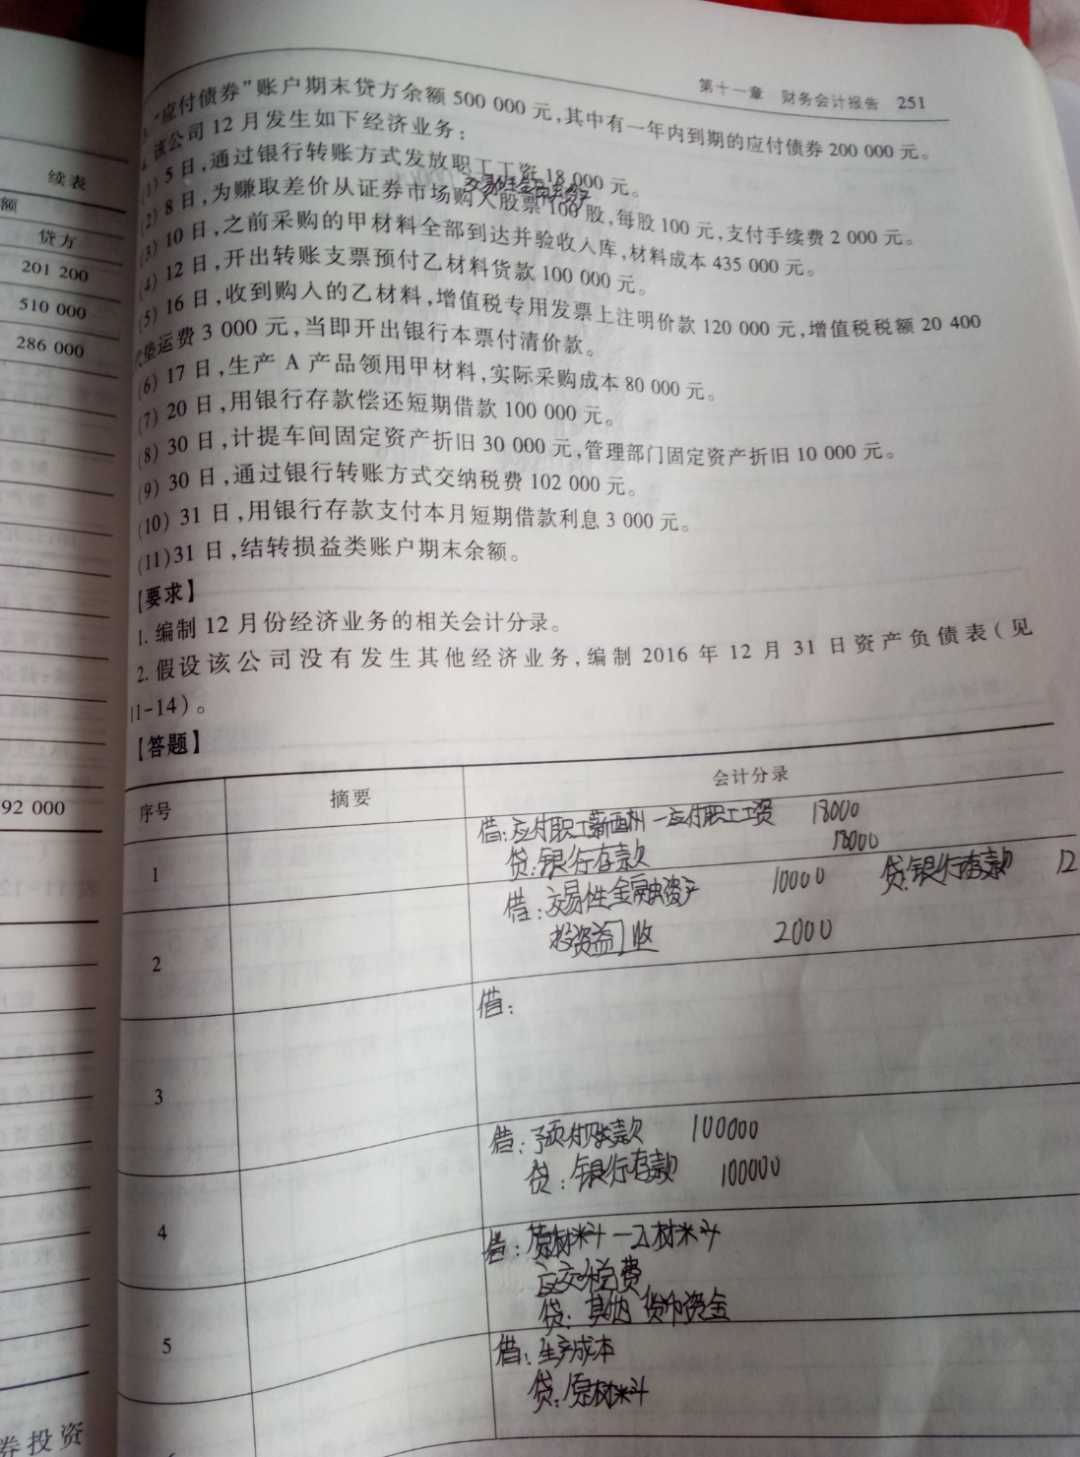 续表
额
贷方
201 200
510 000
286 000
92 000
券投资
第十一章 财务会计报告 251
“应付债券”账户期末贷方余额 500 000 元,其中有一年内到期的应付债券 200 000 元。
4. 该公司 12 月发生如下经济业务:
(1) 5 日,通过银行转账方式发放职工工资 18 000 元。
交易性金融资产
(2) 8 日,为赚取差价从证券市场购入股票 100 股,每股 100 元,支付手续费 2 000 元。
(3) 10 日,之前采购的甲材料全部到达并验收入库,材料成本 435 000 元。
(4) 12 日,开出转账支票预付乙材料货款 100 000 元。
(5) 16 日,收到购入的乙材料,增值税专用发票上注明价款 120 000 元,增值税税额 20 400
垫运费 3 000 元,当即开出银行本票付清价款。
(6) 17 日,生产 A 产品领用甲材料,实际采购成本 80 000 元。
(7) 20 日,用银行存款偿还短期借款 100 000 元。
(8) 30 日,计提车间固定资产折旧 30 000 元,管理部门固定资产折旧 10 000 元。
(9) 30 日,通过银行转账方式交纳税费 102 000 元。
(10) 31 日,用银行存款支付本月短期借款利息 3 000 元。
(11)31 日,结转损益类账户期末余额。
【要求】
1. 编制 12 月份经济业务的相关会计分录。
2. 假设该公司没有发生其他经济业务,编制 2016 年 12 月 31 日资产负债表(见
11-14)。
【答题】
序号 摘要 会计分录
1 借:应付职工薪酬—应付职工工资 18000
贷:银行存款 18000
2 借:交易性金融资产 10000 贷:银行存款 12
投资益收 2000
3 借:
4 借:预付账款 100000
贷:银行存款 100000
5 借:原材料—乙材料
应交税费
贷:其他货币资金
借:生产成本
贷:原材料